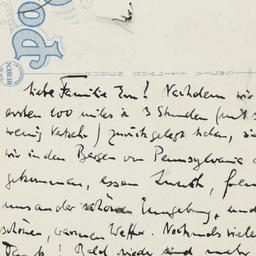 Po
RUBEN
Liebe Familie Em! Nachdem wir
ersten 100 miles in 3 Stunden (mit
wenig Verkehr) zurückgelegt haben, sin
wir in den Bergen von Pennsylvania
gekommen, essen Lunch, freu
uns an der schönen Umgebung, und
schönen, warmen Wetter. Nochmals viele
Dank! Bald wieder mehr